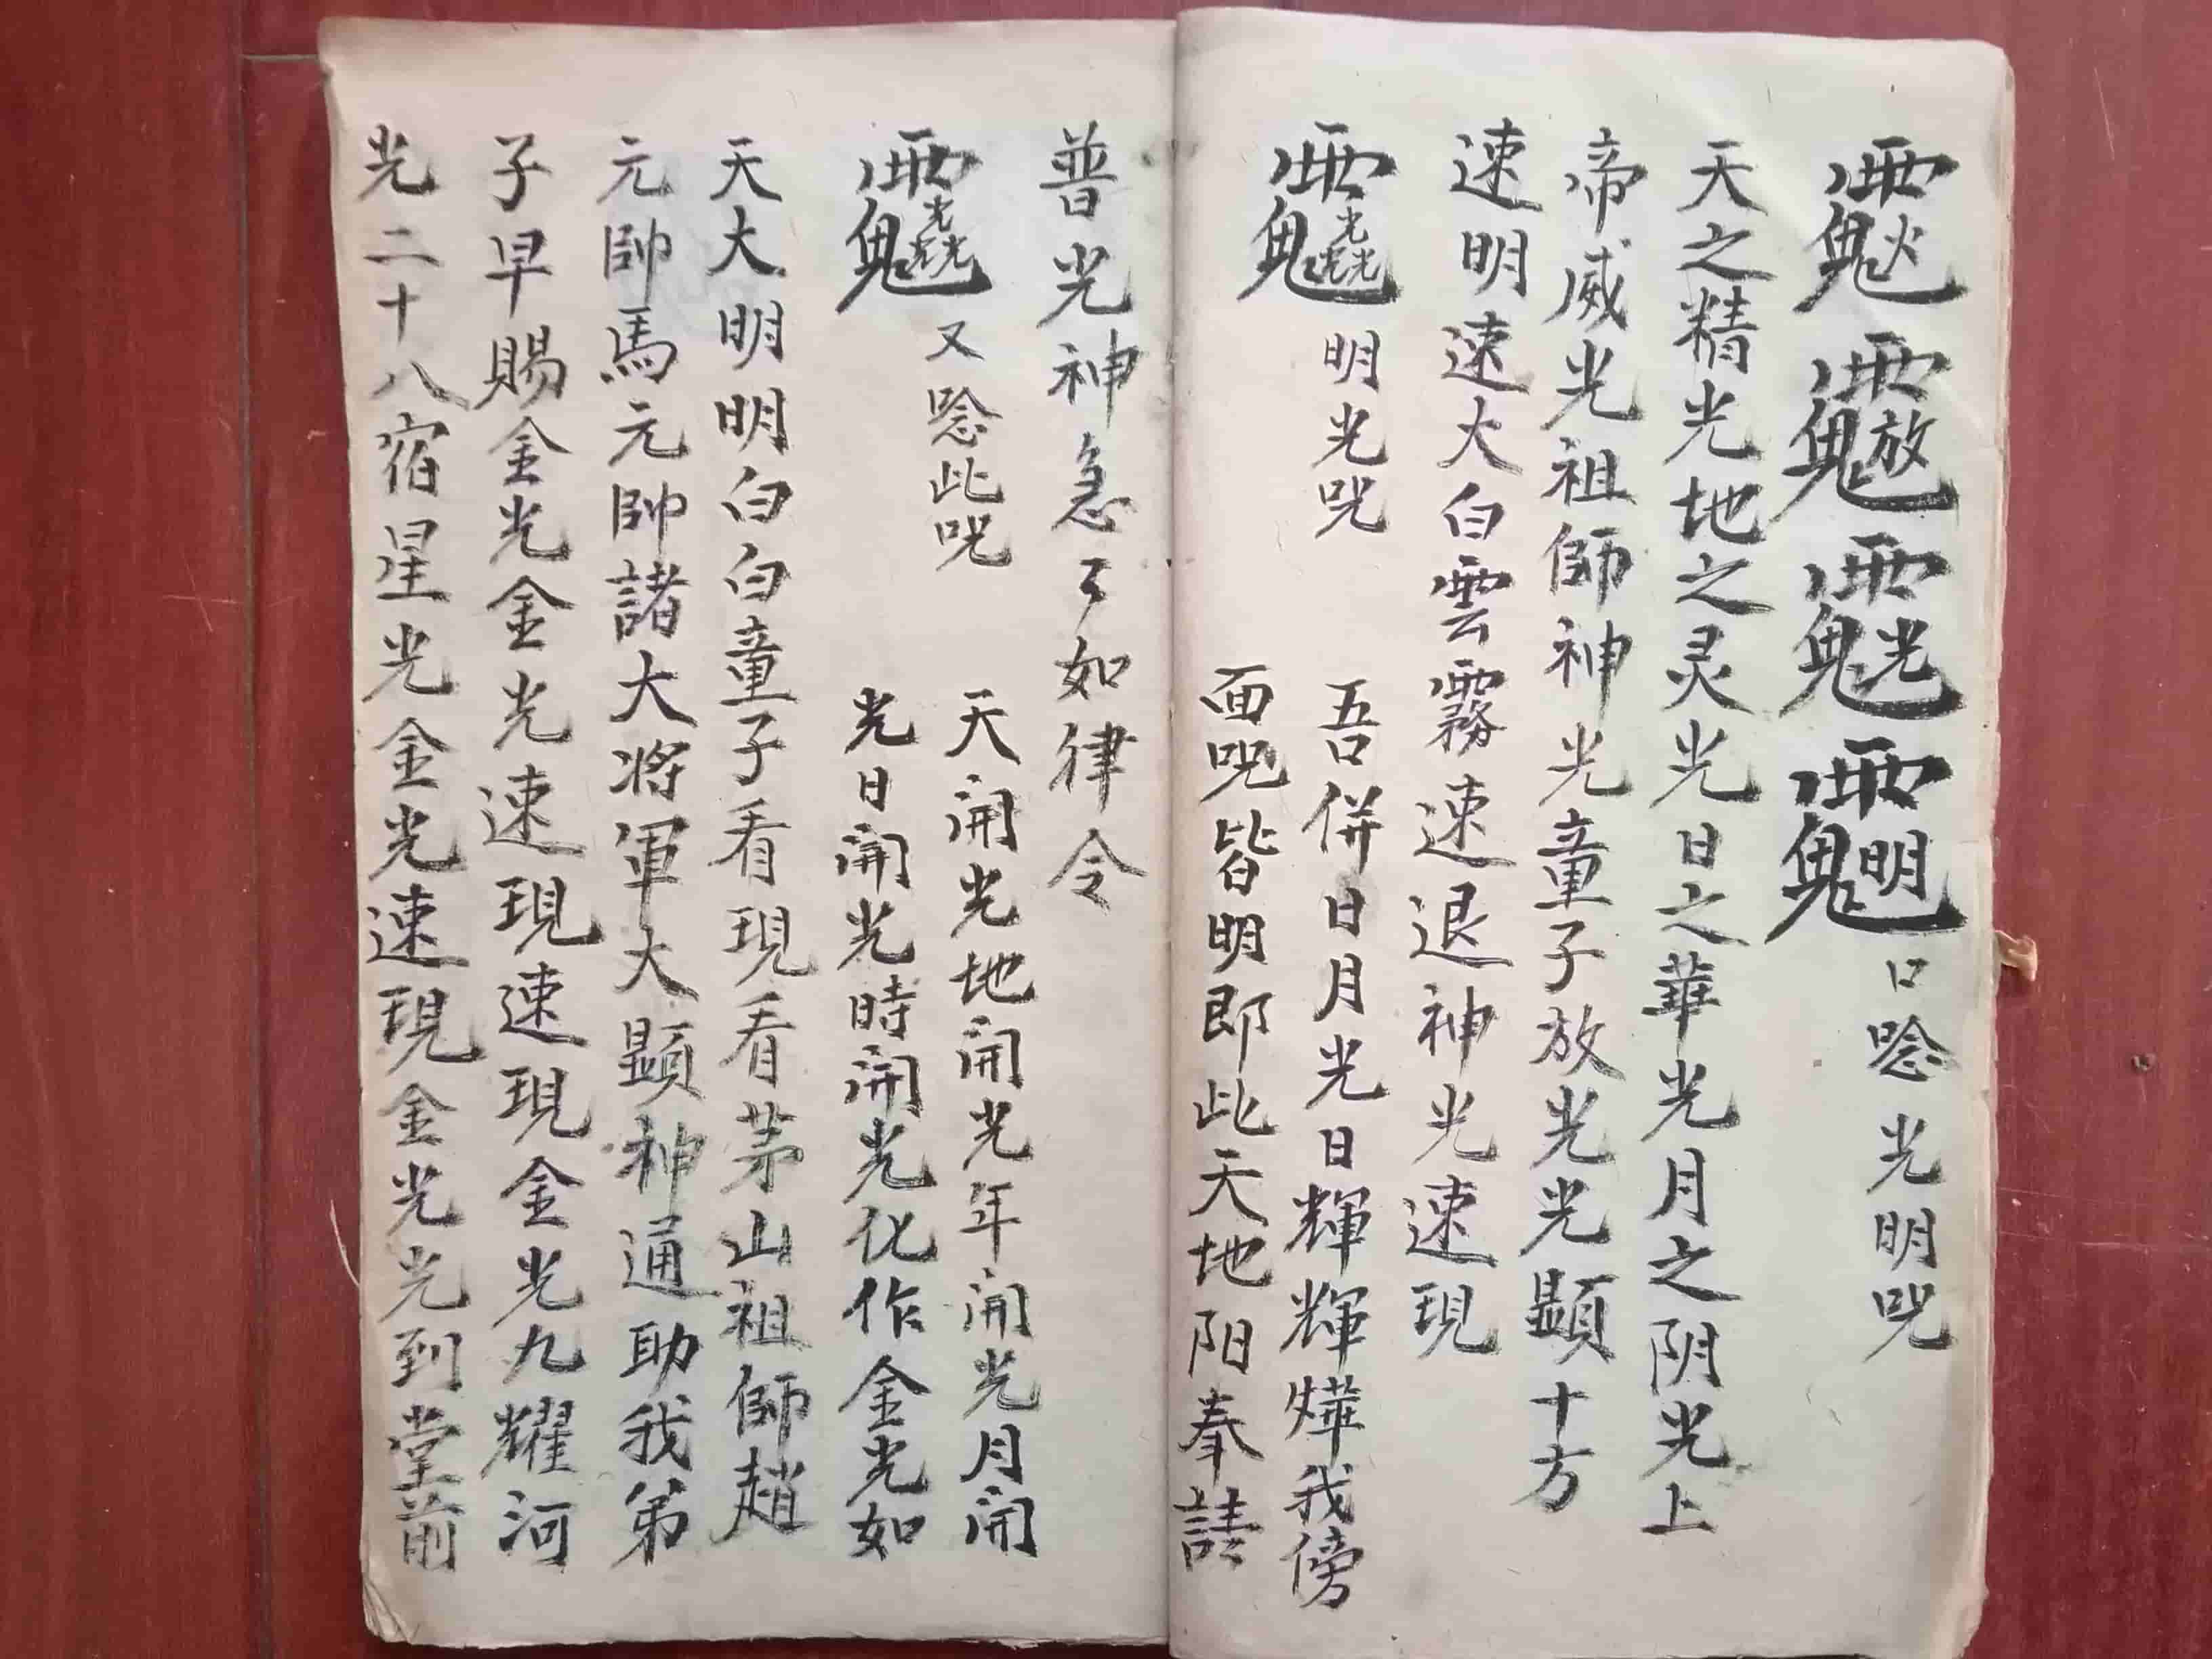 口唸光明咒
天之精光地之灵光日之華光月之阴光上
帝威光祖師神光童子放光光顕十方
速明速大白雲霧速退神光速現
明光咒
吾併日月光日輝輝燁我傍
面咒皆明即此天地阳奉請
普光神急々如律令
又唸此咒
天開光地開光年開光月開
光日開光時開光化作金光如
天大明明白白童子看現看茅山祖師趙
元帥馬元帥諸大将軍大顕神通助我弟
子早賜金光金光速現速現金光九耀河
光二十八宿星光金光速現金光光到堂前